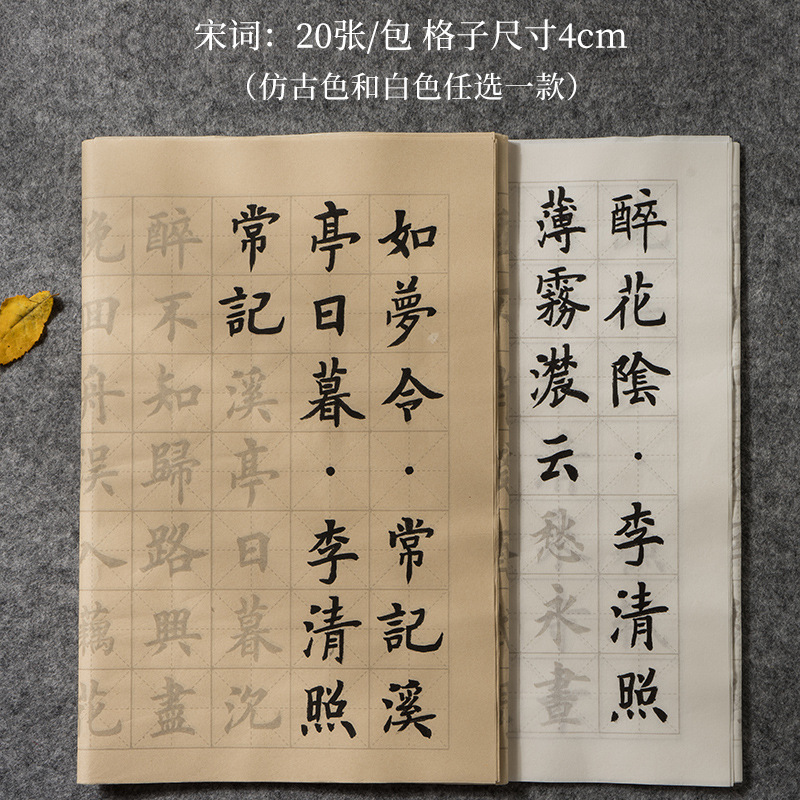 宋词：20张/包 格子尺寸4cm
（仿古色和白色任选一款）
如夢令·常記溪
亭日暮·李清照
常記溪亭日暮沉
醉不知歸路興盡
晚回舟誤入藕花
醉花陰·李清照
薄霧濃云愁永晝